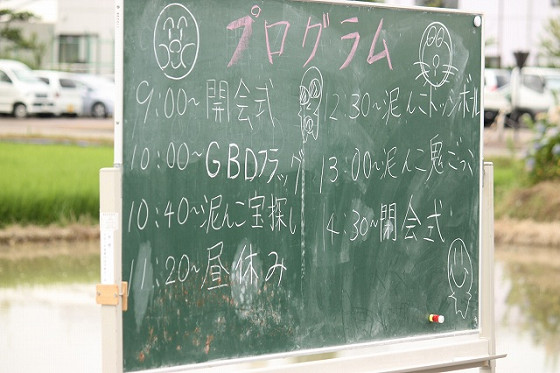 プログラム
9:00~開会式
10:00~GBDフラッグ
10:40~泥んこ宝探し
11:20~昼休み
12:30~泥んこドッジボール
13:00~泥んこ鬼ごっこ
14:30~閉会式